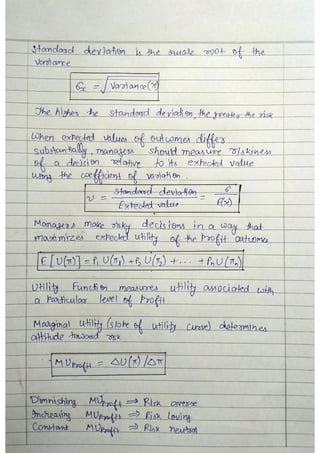 Standard deviation is the square root of the
variance
σx = √Variance(x)
The higher the standard deviation, the greater the risk
When expected values of outcomes differ
substantially, managers should measure riskiness
of a decision relative to its expected value
using the coefficient of variation.
υ = Standard deviation / Expected value = σ / E(x)
Managers make risky decisions in a way that
maximizes expected utility of the profit outcomes
E[U(π)] = P₁ U(π₁) + P₂ U(π₂) + ... + Pn U(πn)
Utility Function measures utility associated with
a particular level of profit
Marginal utility (slope of utility curve) determines
attitude toward risk
MUprofit = ΔU(π)/Δπ
Diminishing MUprofit ⇒ Risk averse
Increasing MUprofit ⇒ Risk loving
Constant MUprofit ⇒ Risk neutral